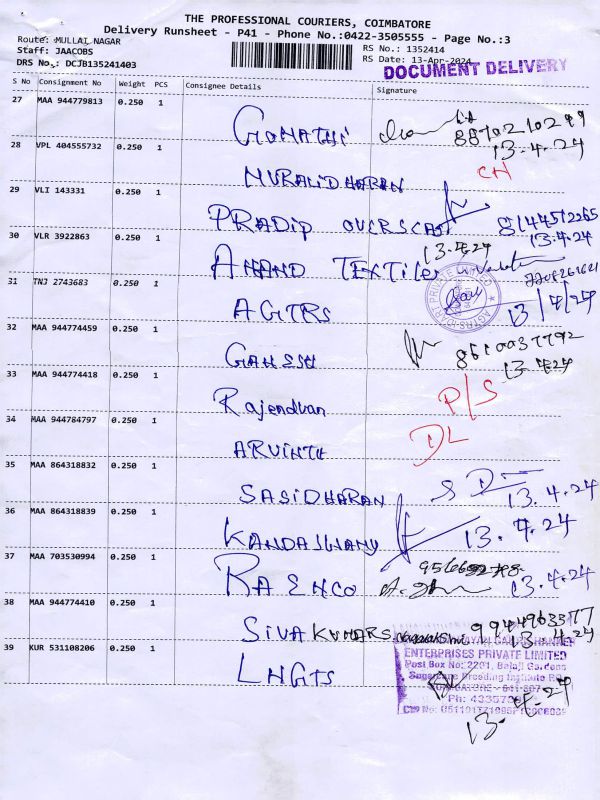 THE PROFESSIONAL COURIERS, COIMBATORE
Delivery Runsheet - P41 - Phone No.:0422-3505555 - Page No.:3
Route: MULLAI NAGAR
Staff: JAACOBS
DRS No.: DCJB135241403
RS No.: 1352414
RS Date: 13-Apr-2024
DOCUMENT DELIVERY
S No Consignment No Weight PCS Consignee Details Signature
27 MAA 944779813 0.250 1
GOMATHI 8870210299
13.4.24
28 VPL 404555732 0.250 1
MURALIDHARAN CH
29 VLI 143331 0.250 1
PRADIP OVERSEAS 8144512265
13.4.24
30 VLR 3922863 0.250 1
13.4.24
ANAND TEXTILES
31 TNJ 2743683 0.250 1
AGTRS 13/4/24
32 MAA 944774459 0.250 1
GANESH 8610037792
13.4.24
33 MAA 944774418 0.250 1
Rajendran P/S
34 MAA 944784797 0.250 1
ARVINTH DL
35 MAA 864318832 0.250 1
SASIDHARAN 13.4.24
36 MAA 864318839 0.250 1
KANDASWAMY 13.4.24
37 MAA 703530994 0.250 1
13.4.24
38 MAA 944774410 0.250 1
SIVA KUMARS 9944963377
13.4.24
39 KUR 531108206 0.250 1
LHGTS
ENTERPRISES PRIVATE LIMITED
Post Box No: 2201, Balaji Gardens
Sugarcane Breeding Institute
13.4.24